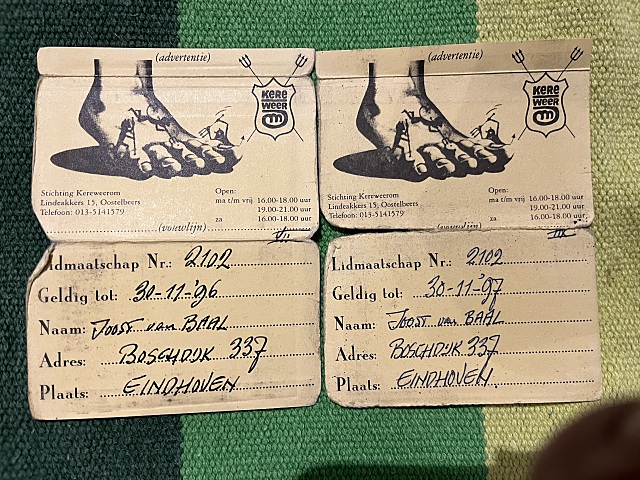 (advertentie)
KERE
WEER
Stichting Kereweerom
Lindeakkers 15, Oostelbeers
Telefoon: 013-5141579
Open:
ma t/m vrij 16.00-18.00 uur
19.00-21.00 uur
za 16.00-18.00 uur
(vouwlijn)
VII
idmaatschap Nr.: 2102
Geldig tot: 30-11-'96
Naam: JOOST van BAAL
Adres: BOSCHDIJK 337
Plaats: EINDHOVEN
(advertentie)
KERE
WEER
Stichting Kereweerom
Lindeakkers 15, Oostelbeers
Telefoon: 013-5141579
Open:
ma t/m vrij 16.00-18.00 uur
19.00-21.00 uur
za 16.00-18.00 uur
(vouwlijn)
Lidmaatschap Nr.: 2102
Geldig tot: 30-11-'97
Naam: JOOST van BAAL
Adres: BOSCHDIJK 337
Plaats: EINDHOVEN